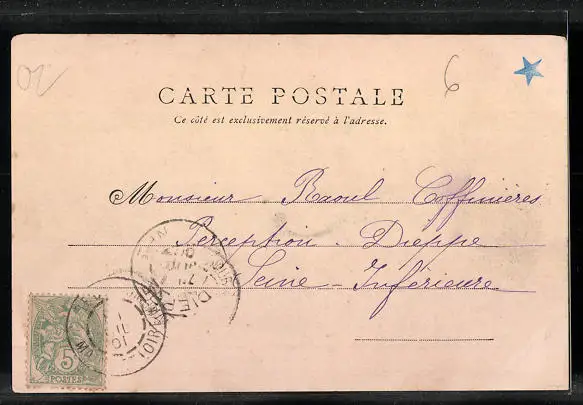 6
CARTE POSTALE
Ce côté est exclusivement réservé à l'adresse.
Monsieur Raoul Coffinières
Perception - Dieppe
Seine-Inférieure
5
POSTES